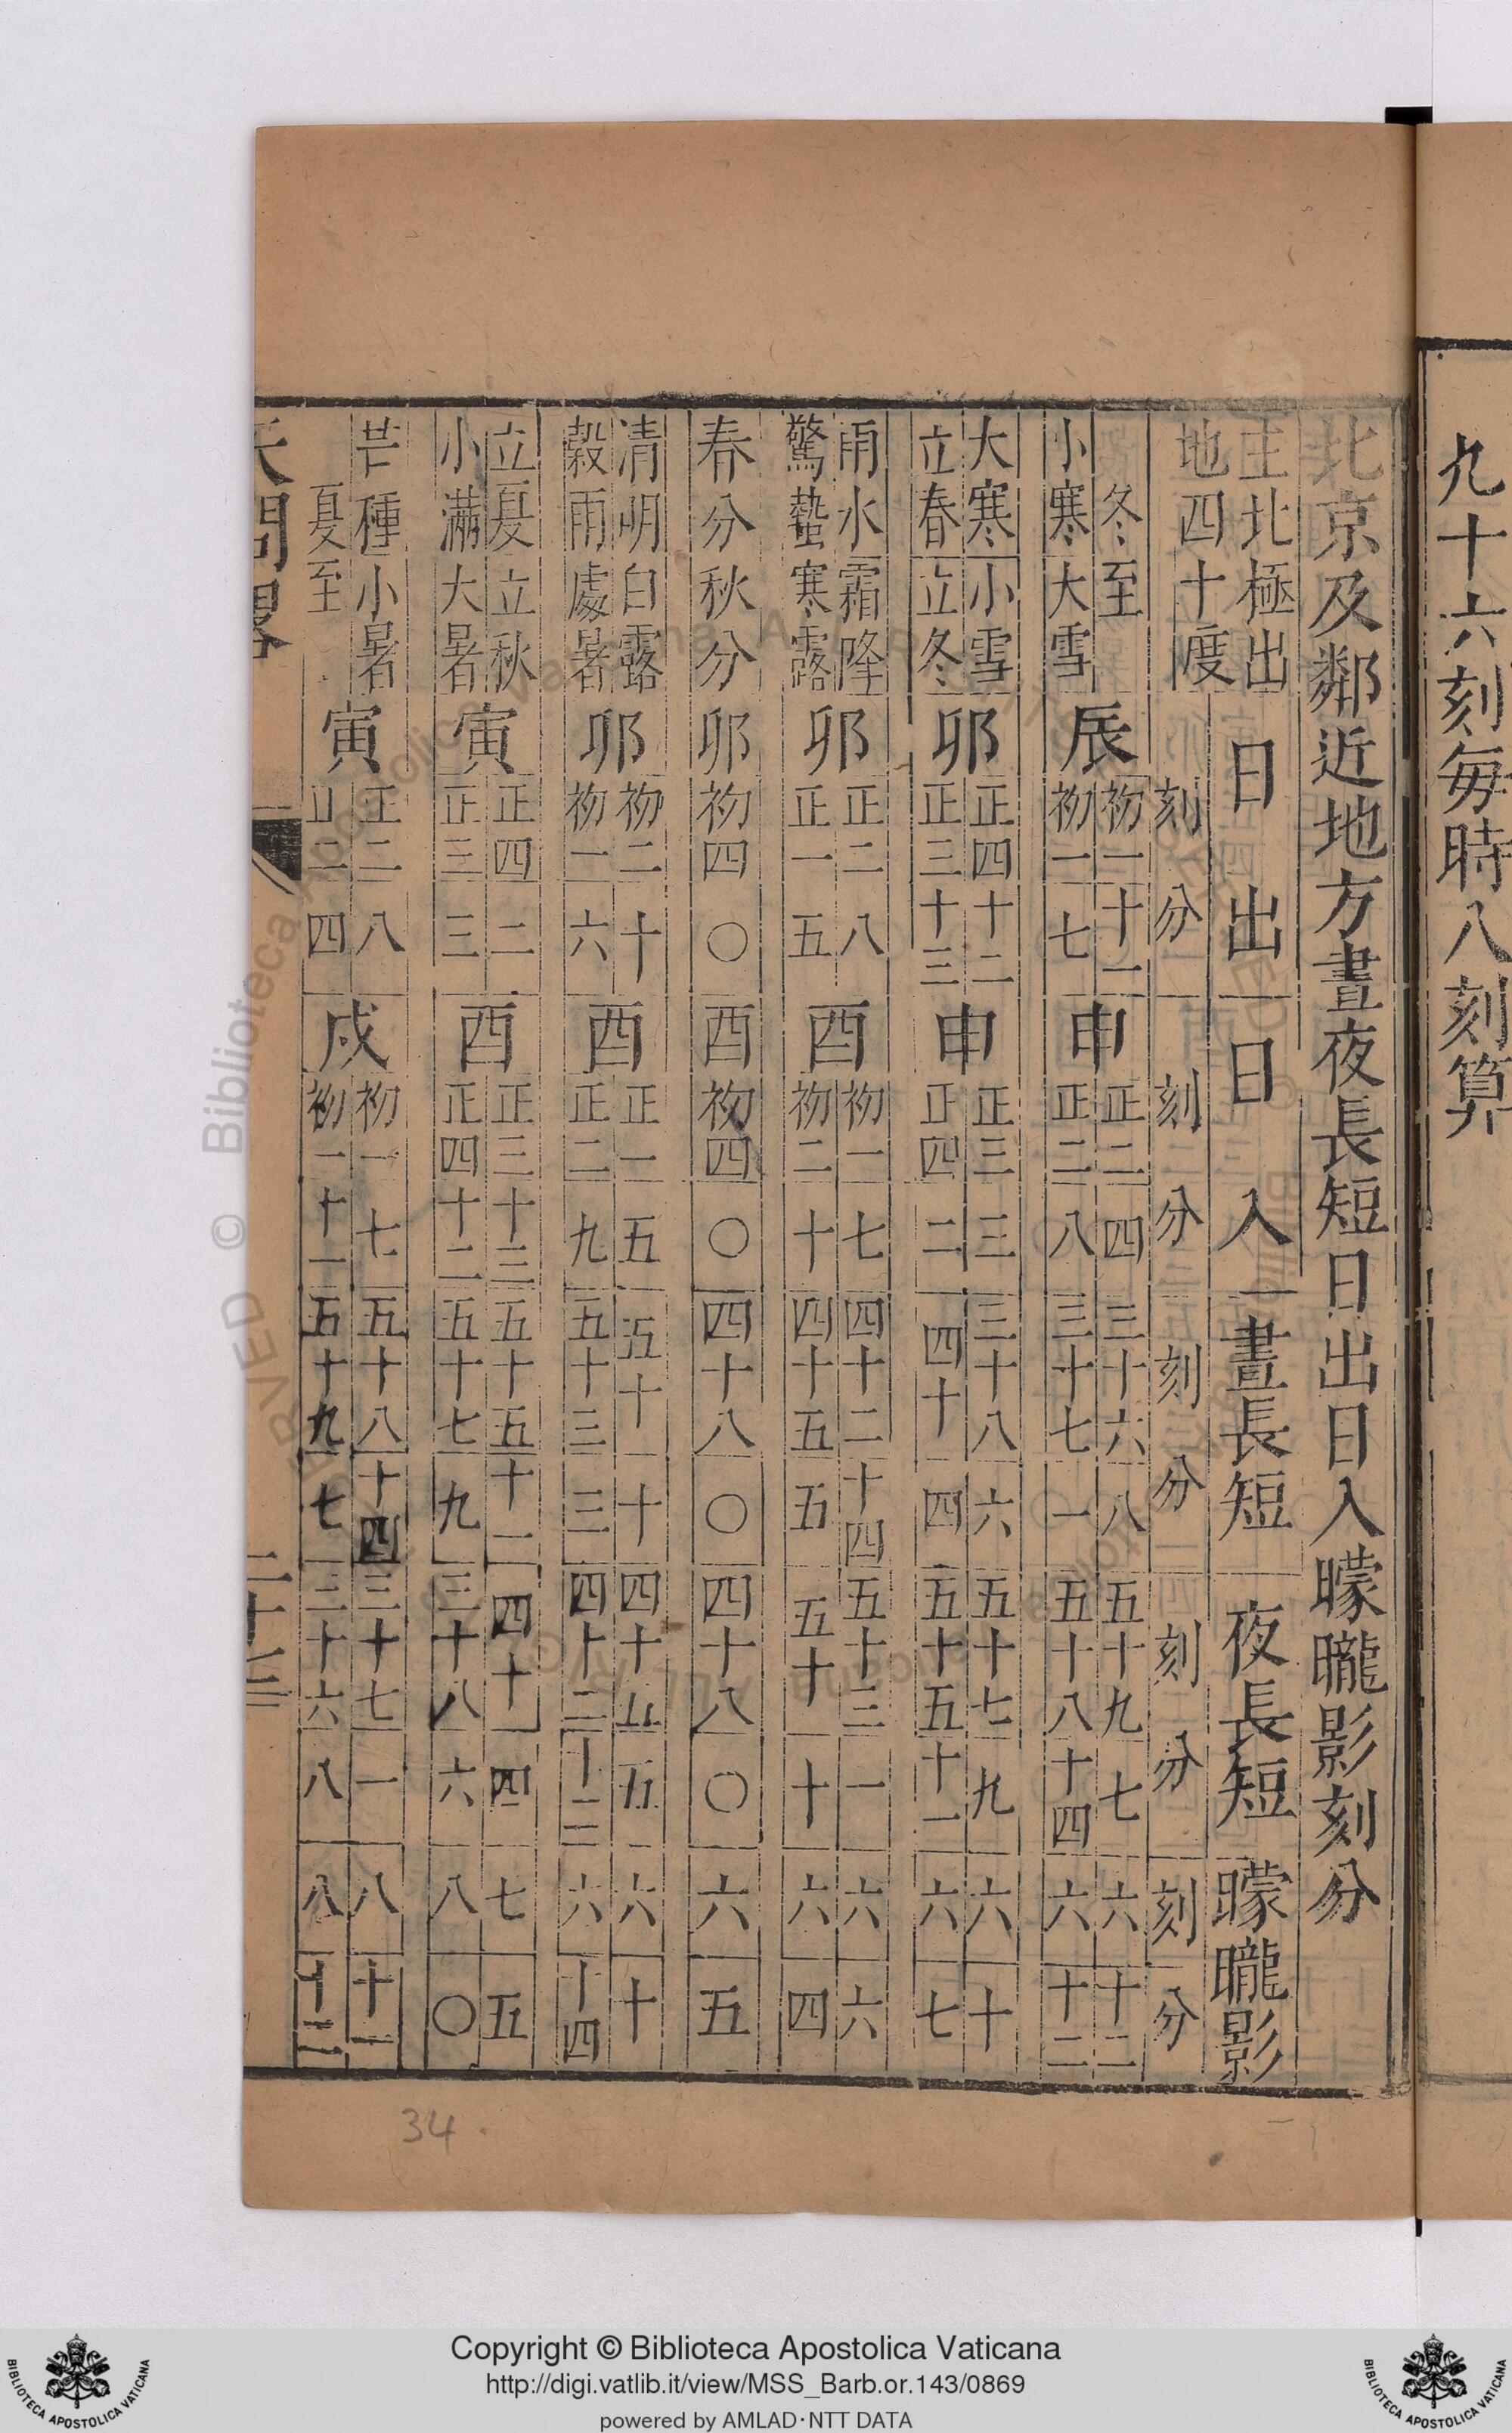 九十六刻每時八刻算
北京及鄰近地方晝夜長短日出日入曚曨影刻分
北極出
地四十度
日出 日入 晝長短 夜長短 曚曨影
刻 分 刻 分 刻 分 刻 分 刻 分
冬至 辰 初一 十一 申 正二 四 三十六 八 五十九 七 六 十二
小寒 大雪 初一 七 正二 八 三十七 一 五十八 十四 六 十二
大寒 小雪 卯 正四 十二 申 正三 三 三十八 六 五十七 九 六 十
立春 立冬 正三 十三 正四 二 四十 四 五十五 十一 六 七
雨水 霜降 卯 正二 八 酉 初一 七 四十二 十四 五十三 一 六 六
驚蟄 寒露 正一 五 初二 十 四十五 五 五十 十 六 四
春分 秋分 卯 初四 〇 酉 初四 〇 四十八 〇 四十八 〇 六 五
清明 白露 卯 初二 十 酉 正一 五 五十 十 四十五 五 六 十
穀雨 處暑 初一 六 正二 九 五十三 三 四十二 十二 六 十四
立夏 立秋 寅 正四 二 酉 正三 十三 五十五 十一 四十 四 七 五
小滿 大暑 正三 三 正四 十二 五十七 九 三十八 六 八 〇
芒種 小暑 寅 正二 八 戌 初一 七 五十八 十四 三十七 一 八 十一
夏至 正二 四 初一 十一 五十九 七 三十六 八 八 十二
天問畧 二十三
34
© Biblioteca Apostolica Vaticana
Copyright © Biblioteca Apostolica Vaticana
http://digi.vatlib.it/view/MSS_Barb.or.143/0869
powered by AMLAD·NTT DATA
BIBLIOTECA APOSTOLICA VATICANA
BIBLIOTECA APOSTOLICA VATICANA